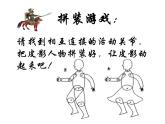 拼装游戏：
请找到相互连接的活动关节，
把皮影人物拼装好，让皮影动
起来吧！